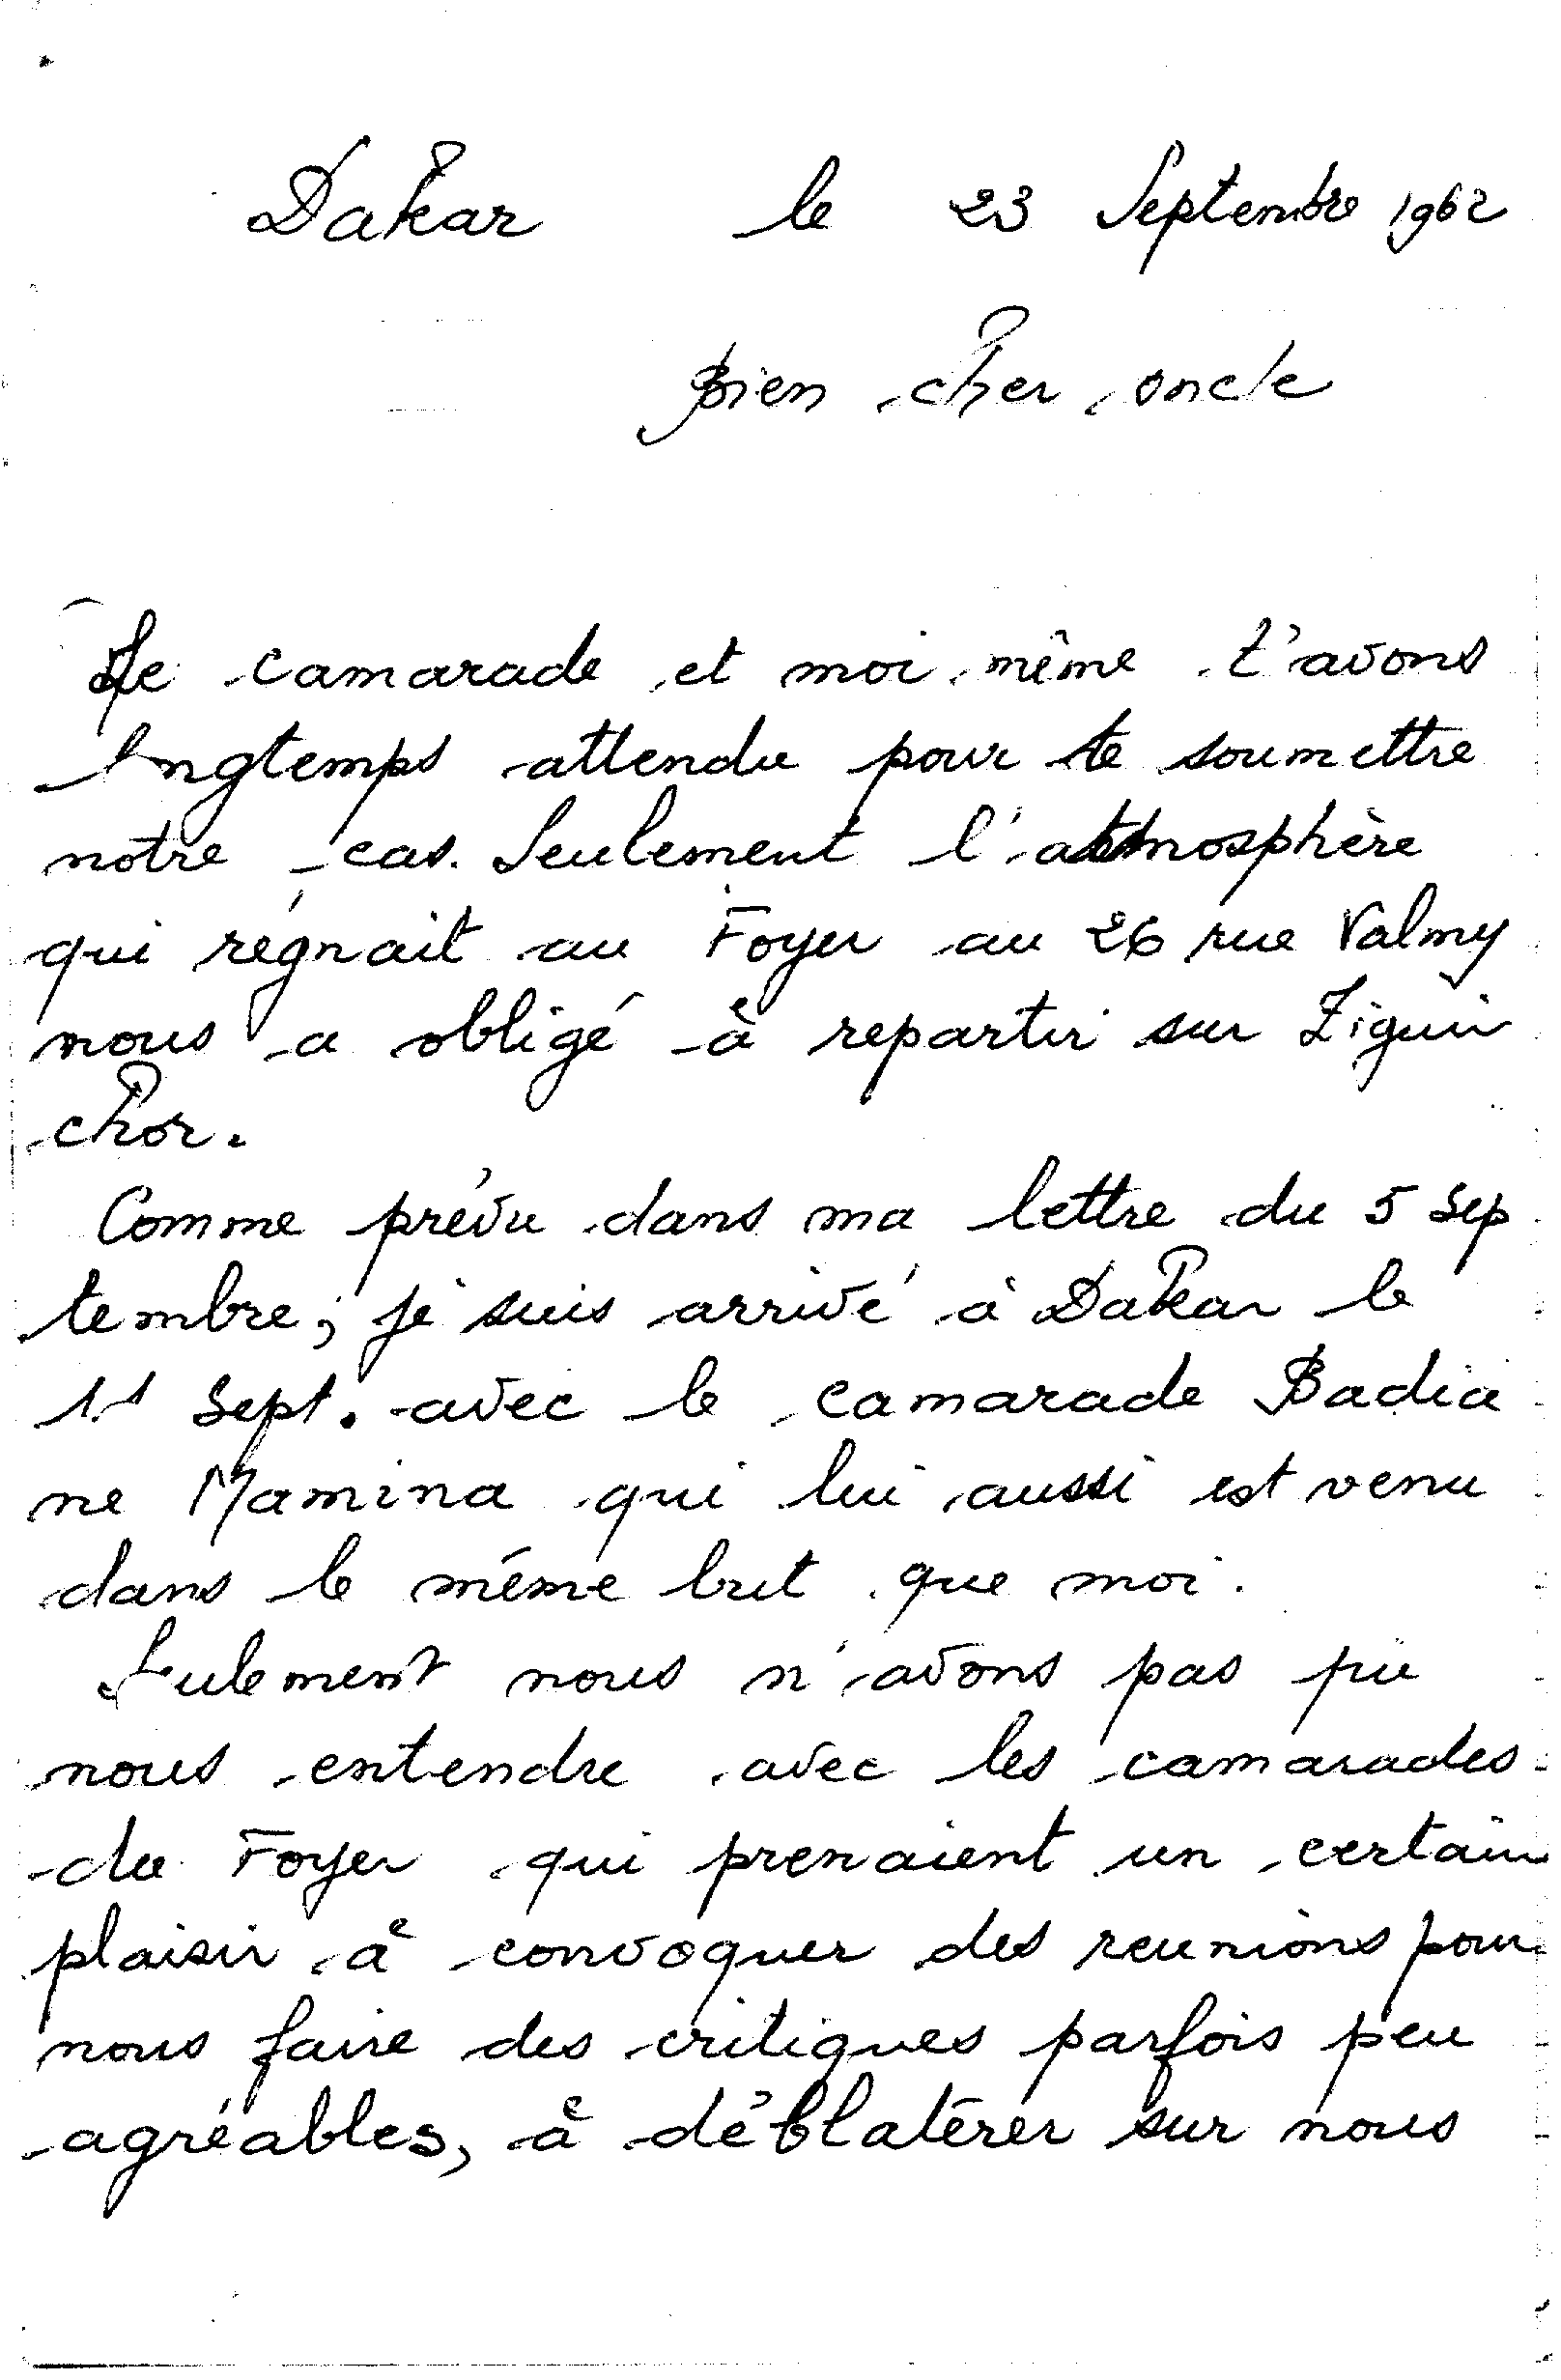 Dakar le 23 Septembre 1962
Bien cher oncle
Le camarade et moi même t'avons
longtemps attendu pour te soumettre
notre cas. Seulement l'atmosphère
qui régnait au Foyer au 26 rue Valmy
nous a obligé à repartir sur Ziguin
chor.
Comme prévu dans ma lettre du 5 Sep
tembre; je suis arrivé à Dakar le
11 Sept. avec le camarade Badia
ne Mamina qui lui aussi est venu
dans le même but que moi.
Seulement nous n'avons pas pu
nous entendre avec les camarades
du Foyer qui prenaient un certain
plaisir à convoquer des reunions pour
nous faire des critiques parfois peu
agréables, à déblatérer sur nous